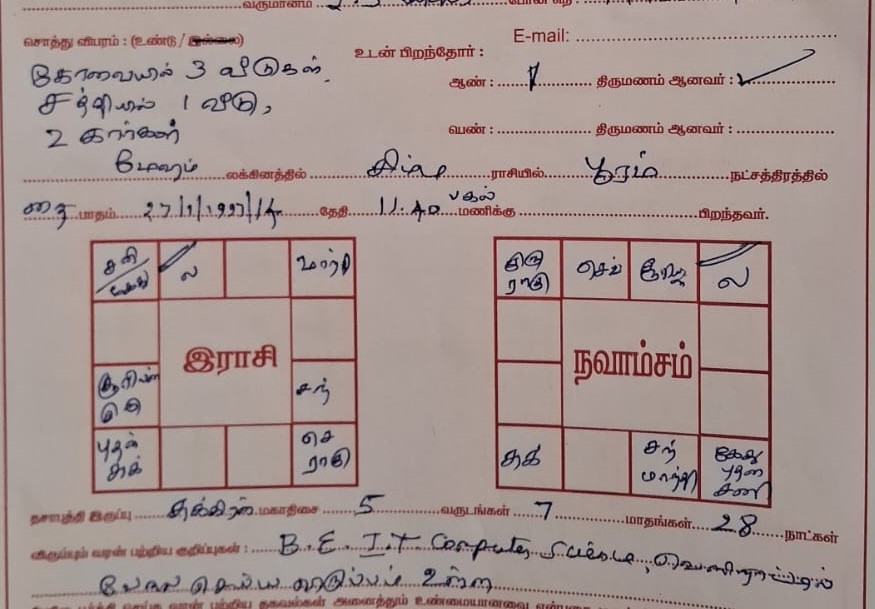 வருமானம்
சொத்து விபரம் : (உண்டு / இல்லை)
உடன் பிறந்தோர் :
E-mail:
கோவையில் 3 வீடுகள்.
ஆண் : 1 திருமணம் ஆனவர் : ✓
சத்தியில் 1 வீடு,
2 கார்கள்
பெண் : திருமணம் ஆனவர் :
மேஷம் லக்கினத்தில் சிம்ம ராசியில் பூரம் நட்சத்திரத்தில்
தை மாதம் 27/1/1997/14 தேதி 11.40 பகல் மணிக்கு பிறந்தவர்.
சனி கேது
ல
மாந்தி
இராசி
சூரியன் குரு
சந்
புதன் சுக்
செ ராகு
குரு ராகு
செவ்
சூரிய
ல
நவாம்சம்
சுக்
சந் மாந்தி
கேது புதன் சனி
தசாபுத்தி இருப்பு சுக்கிரன் மகாதிசை 5 வருடங்கள் 7 மாதங்கள் 28 நாட்கள்
விரும்பும் வரன் பற்றிய குறிப்புகள் : B.E. I.T Computer Science, வெளிநாட்டில்
வேலை செய்ய விருப்பம் உள்ள